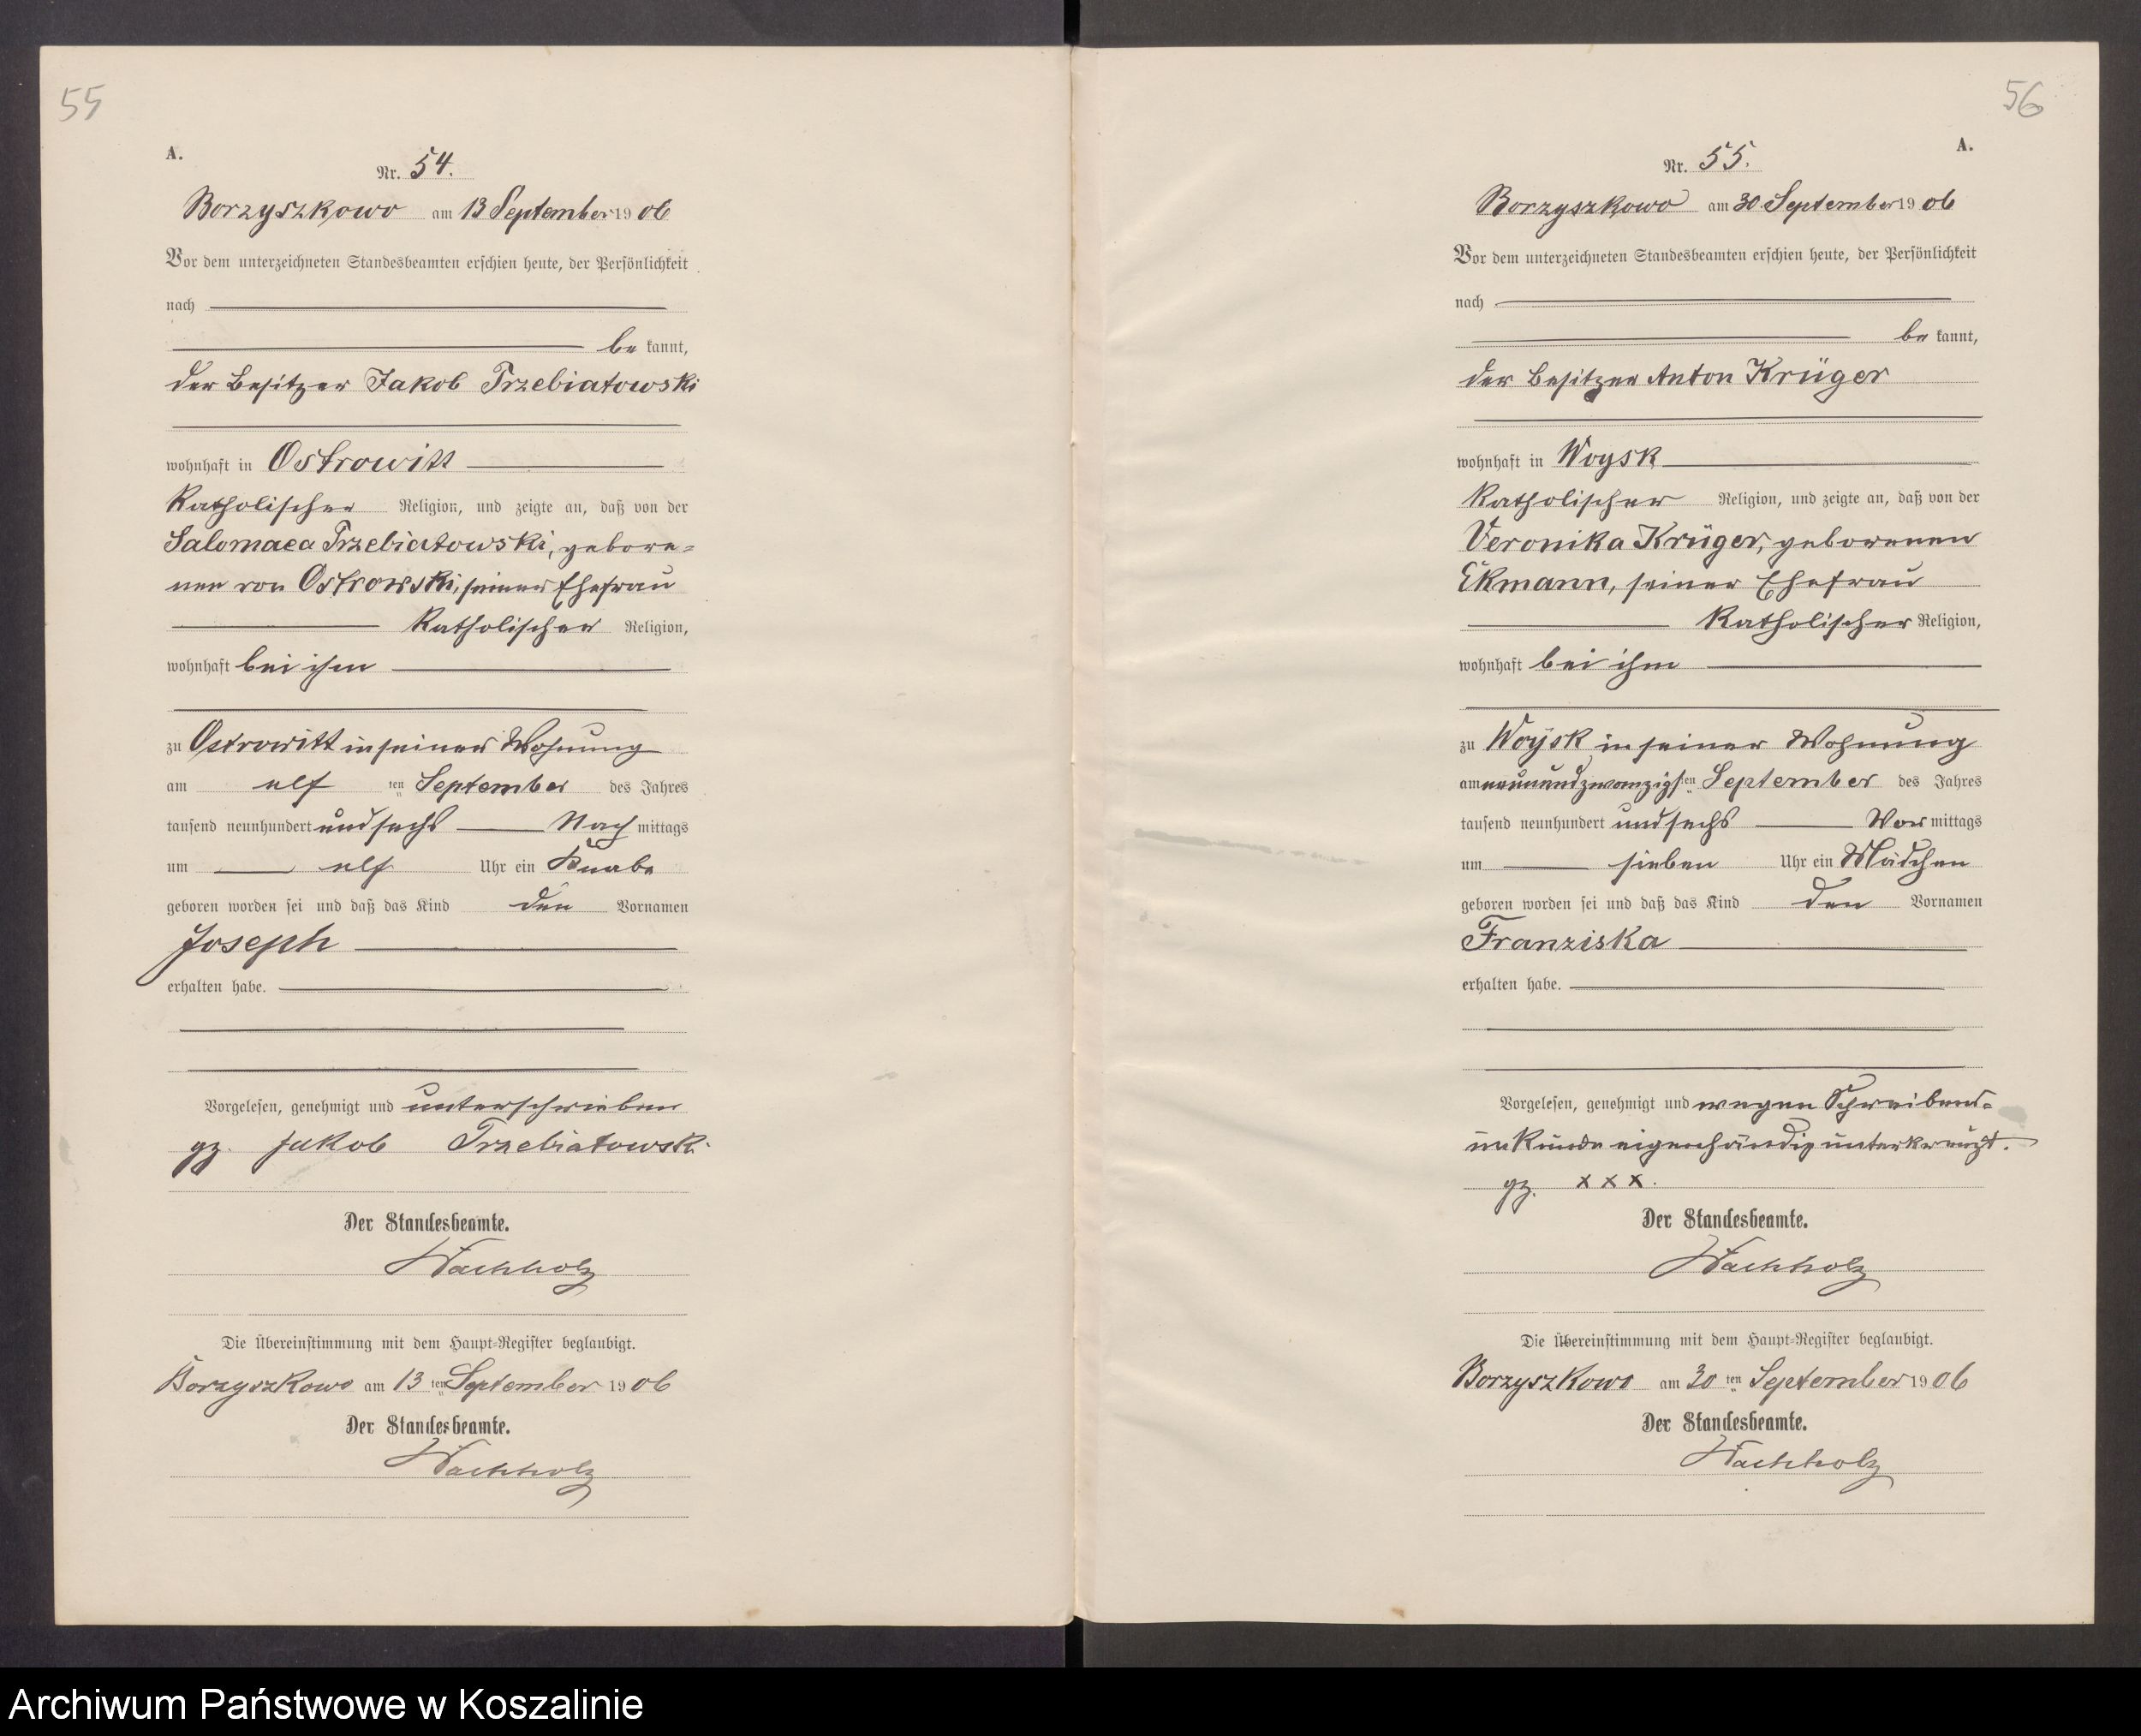 55
A.
Nr. 54.
Borzyszkowo am 13 September 1906
Vor dem unterzeichneten Standesbeamten erschien heute, der Persönlichkeit
nach
be kannt,
der Besitzer Jakob Trzebiatowski
wohnhaft in Ostrowitt
Katholischer Religion, und zeigte an, daß von der
Salomaea Trzebiatowski, gebore=
nen von Ostrowski, seiner Ehefrau
Katholischer Religion,
wohnhaft bei ihm
zu Ostrowitt in seiner Wohnung
am elf ten September des Jahres
tausend neunhundert und sechs Nach mittags
um elf Uhr ein Knabe
geboren worden sei und daß das Kind den Vornamen
Joseph
erhalten habe.
Vorgelesen, genehmigt und unterschrieben
gz. Jakob Trzebiatowski
Der Standesbeamte.
Wachholz
Die Übereinstimmung mit dem Haupt=Register beglaubigt.
Borzyszkowo am 13 ten September 1906
Der Standesbeamte.
Wachholz
56
A.
Nr. 55.
Borzyszkowo am 30 September 1906
Vor dem unterzeichneten Standesbeamten erschien heute, der Persönlichkeit
nach
be kannt,
der Besitzer Anton Krüger
wohnhaft in Woysk
Katholischer Religion, und zeigte an, daß von der
Veronika Krüger, geborenen
Ekmann, seiner Ehefrau
Katholischer Religion,
wohnhaft bei ihm
zu Woÿsk in seiner Wohnung
am neunundzwanzigs ten September des Jahres
tausend neunhundert und sechs Vor mittags
um sieben Uhr ein Mädchen
geboren worden sei und daß das Kind den Vornamen
Franziska
erhalten habe.
Vorgelesen, genehmigt und wegen Schreibens=
unkunde eigenhändig unterkreuzt.
gz. x x x.
Der Standesbeamte.
Wachholz
Die Übereinstimmung mit dem Haupt=Register beglaubigt.
Borzyszkowo am 30 ten September 1906
Der Standesbeamte.
Wachholz
Archiwum Państwowe w Koszalinie